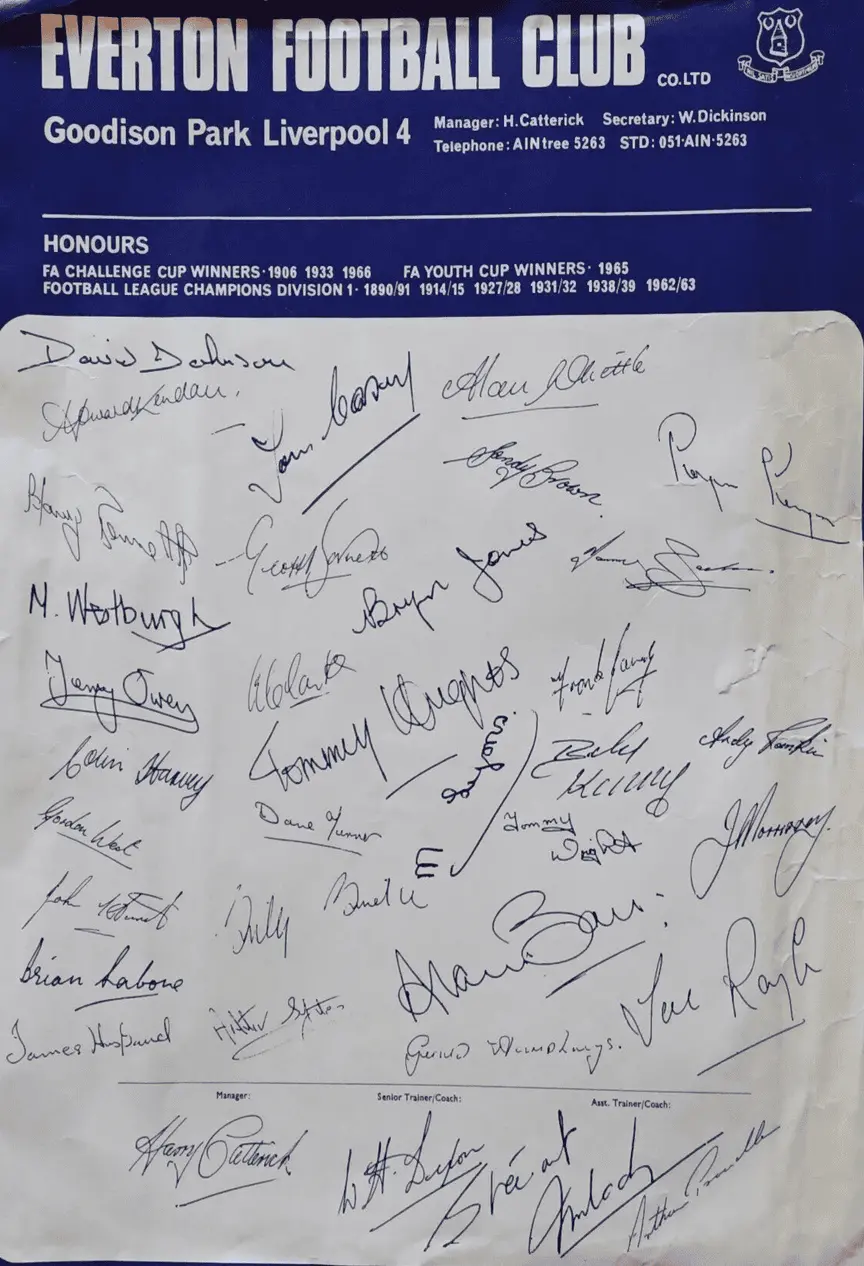 EVERTON FOOTBALL CLUB CO.LTD
NIL SATIS NISI OPTIMUM
Goodison Park Liverpool 4
Manager: H.Catterick Secretary: W.Dickinson
Telephone: AINtree 5263 STD: 051·AIN·5263
HONOURS
FA CHALLENGE CUP WINNERS·1906 1933 1966 FA YOUTH CUP WINNERS· 1965
FOOTBALL LEAGUE CHAMPIONS DIVISION 1· 1890/91 1914/15 1927/28 1931/32 1938/39 1962/63
David Johnson
Howard Kendall.
Alan Whittle
Sandy Brown.
Roger Kenyon
Harry Bennett
M. Westburgh
Bryn Jones
Terry Owen
A Clarke
Tommy Hughes
Frank
Colin Harvey
Billy
Kenny
Andy Rankin
Gordon West
Dave Turner
Tommy
Wright
J Morrissey.
John
Billy
Brian Labone
Alan Ball.
Joe Royle
James Husband
Gerard Humphreys.
Manager:
Senior Trainer/Coach:
Asst. Trainer/Coach:
Harry Catterick
W H.
Stewart
Imlach
Arthur